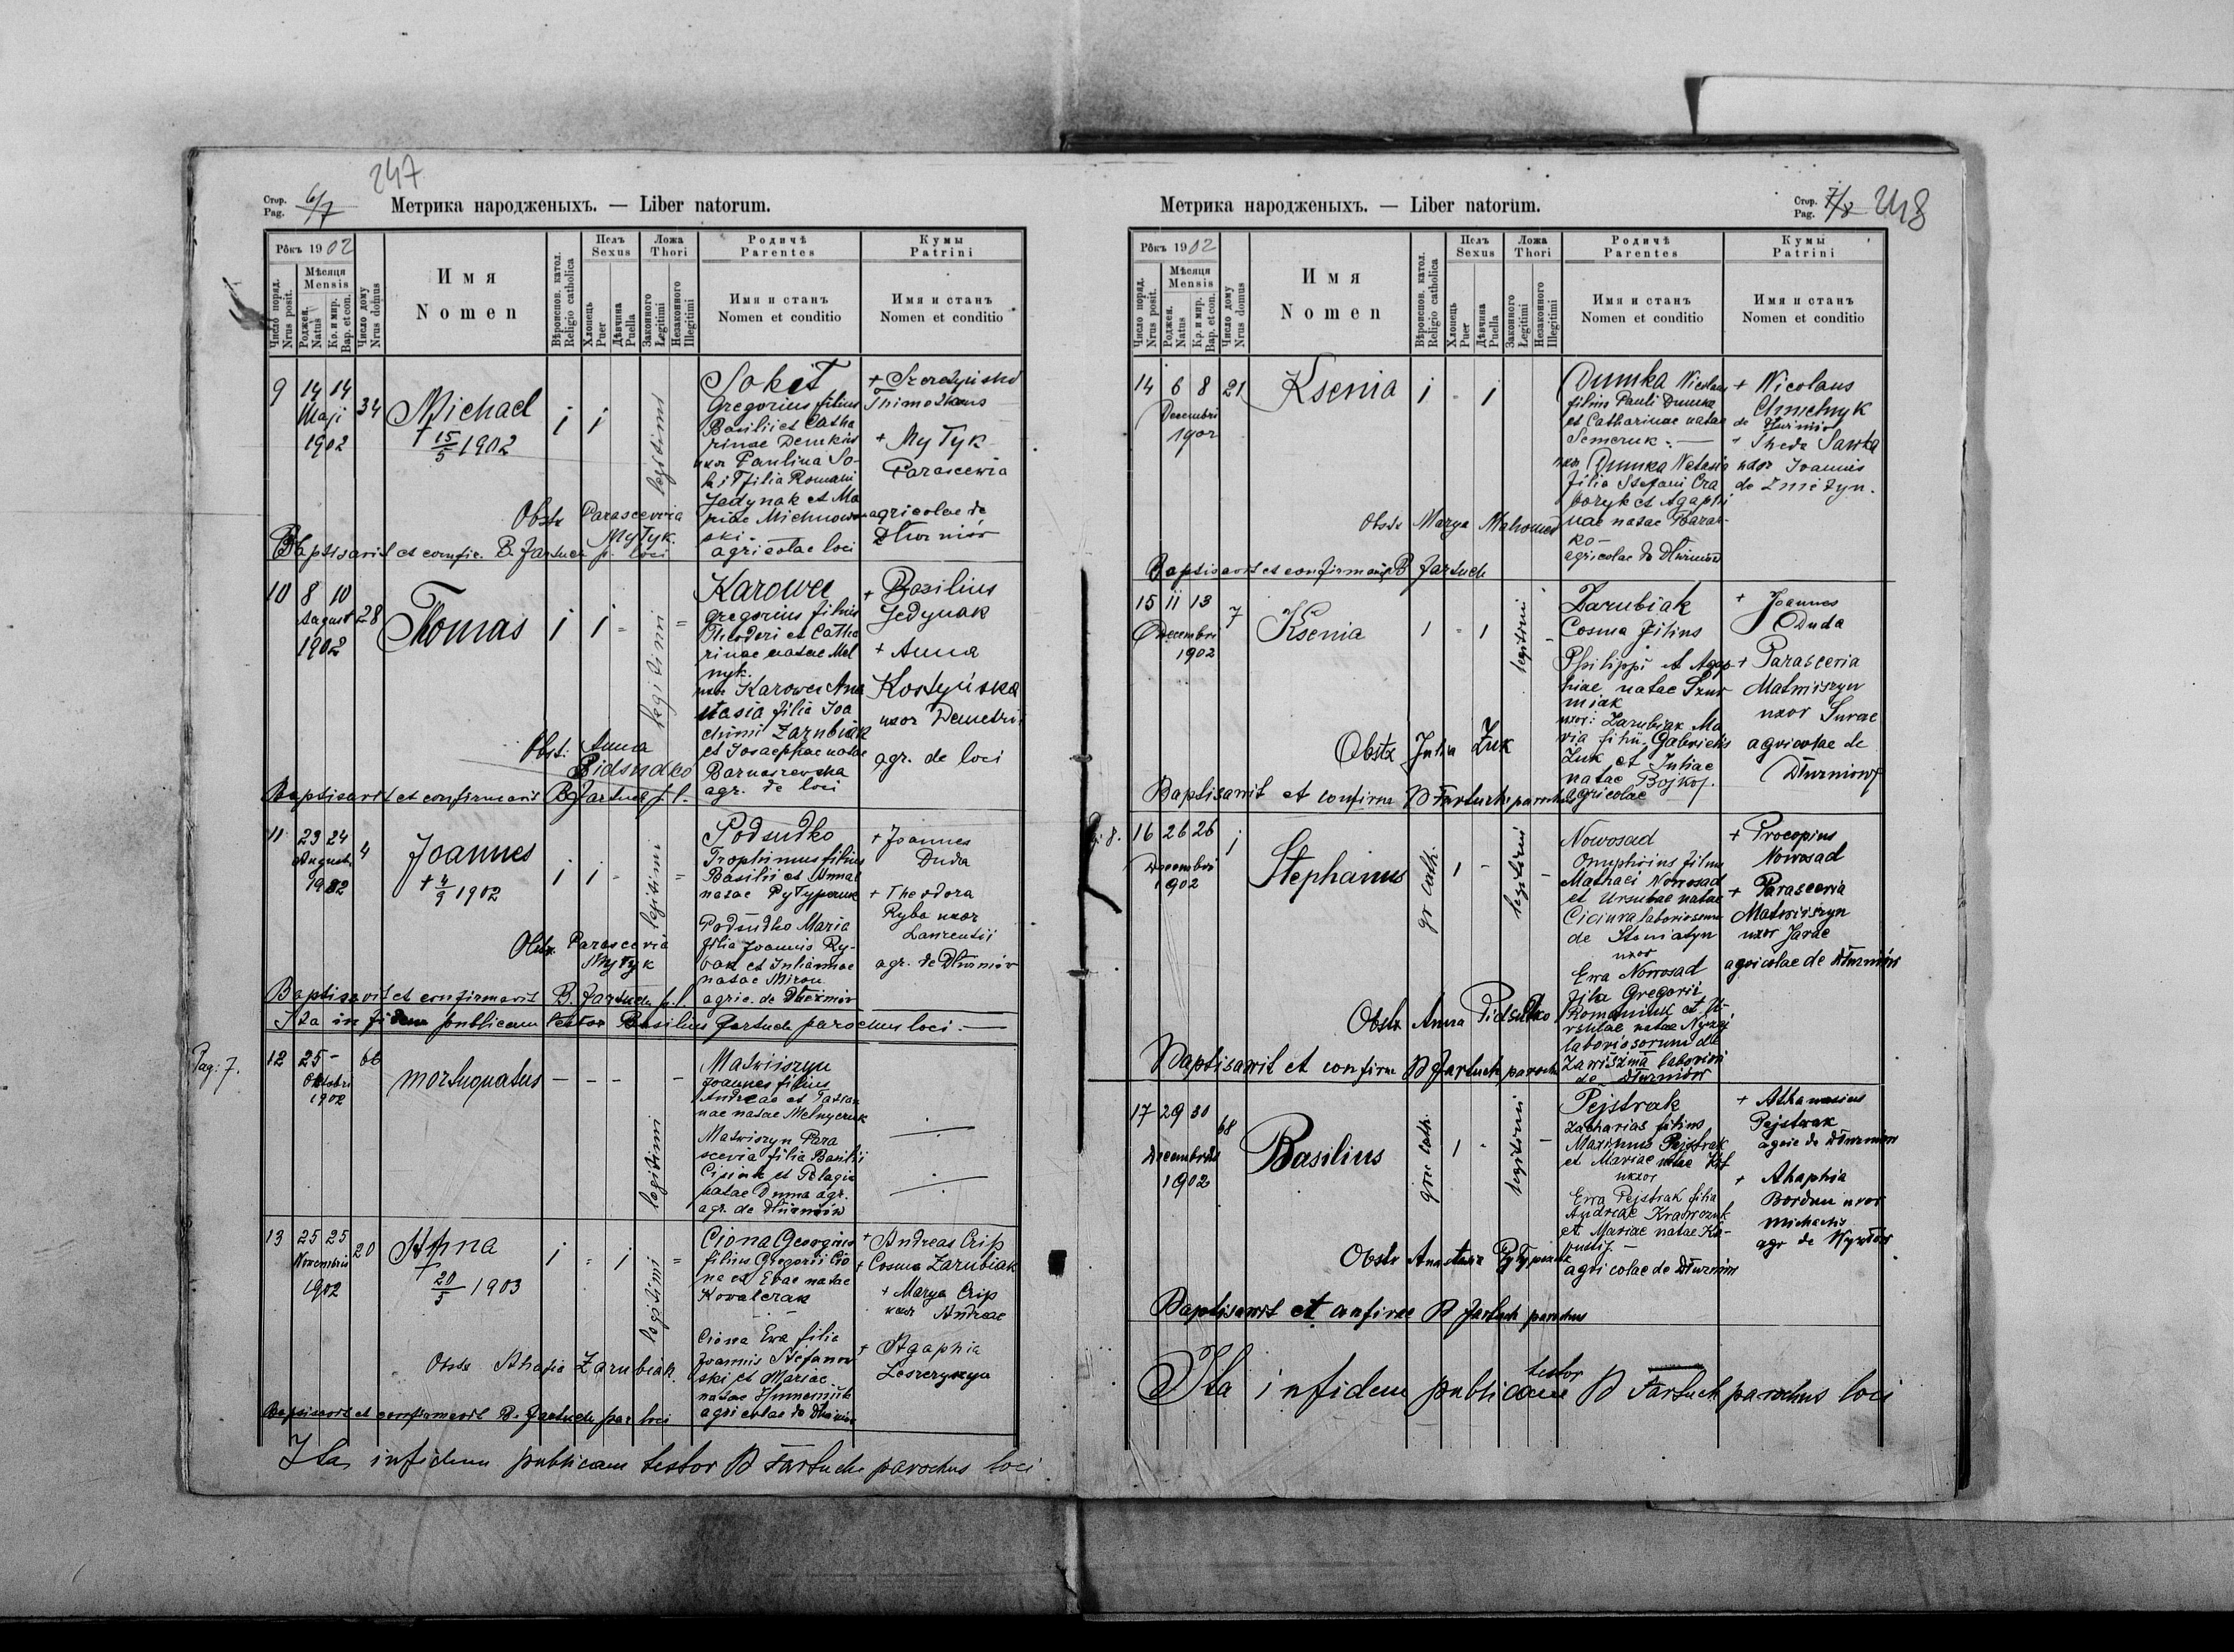 247
Стор. Pag. 6/7
Метрика народженыхъ. — Liber natorum.
Рôкъ 1902
Число поряд. Nrus posit.
Мѣсяця Mensis
Роджен. Natus
Кр. и мир. Bap. et con.
Число дому Nrus domus
Имя Nomen
Вѣроиспов. катол. Religio catholica
Полъ Sexus
Хлопець Puer
Дѣвчина Puella
Ложа Thori
Законного Legitimi
Незаконного Illegitimi
Родичѣ Parentes
Имя и станъ Nomen et conditio
Кумы Patrini
Имя и станъ Nomen et conditio
9 14 14 Maji 1902 34
Michael
† 15/5 1902
i i
legitimi
Sokił
Gregorius filius
Basilii et Catha
rinae Demkiw
uxor Paulina So-
kił filia Romani
Jedynak et Ma
riae Michnow-
ski -
agricolae loci
Thimotheus
+ Mytyk
Parascewia
agricolae de
Dłużniów
Obstx Parascevia
Mytyk.
Baptisavit et confir. B. Fartuch p. loci
10 8 10 August 1902 28
Thomas
i i - legitimi =
Karowec
Gregorius filius
Theodori et Catha
rinae natae Mel
nyk.
uxor Karowec Ana
stasia filia Joa
chimi Zarubiak
et Josaephae natae
agr. de loci
+ Basilius
Jedynak
+ Anna
Kostyńska
uxor Demetri
agr. de loci
Obst: Anna
Pidsudko
Baptisavit et confirmavit B. Fartuch p. l.
11 23 24 Augusti 1902 4
Joannes
† 4/9 1902
i i - legitimi =
Podsudko
Trophimus filius
Basilii et Annae
natae Pytypczuk
Podsudko Maria
filia Joannis Ry-
bak et Juliannae
natae Miron
agric. de Dłużniów
+ Joannes
Duda
+ Theodora
Ryba uxor
Laurentii
agr. de Dłużniów
Obstx. Parascevia
Mytyk
Baptisavit et confirmavit B. Fartuch p. l.
Ita in fidem publicam testor Basilius Fartuch parochus loci. —
Pag: 7.
12 25 - Oktobri 1902 66
mortuus natus
- - - legitimi -
Matwiiszyn
Joannes filius
Andreae et Tatian
nae natae Melnyczuk
Matwiszyn Para
scevia filia Basilii
et Pelagia
natae Duma agr.
agr. de Dłużniów
13 25 25 Novembris 1902 20
Anna
† 20/5 1903
i = i legitimi =
Ciona Georgius
filius Gregorii Cio
na et Evae natae
Kowalczak
Ciona Ewa filia
Joannis Stefanow
ski et Mariae
natae
agricolae de Dłużniów
+ Andreas Crip
+ Cosma Zarubiak
+ Marya Crip
uxor Andreae
+ Agaphia
Obstx Ahafia Zarubiak.
Baptisavit et confirmavit B. Fartuch par loci
Ita in fidem publicam testor B Fartuch parochus loci.
Метрика народженыхъ. — Liber natorum.
Стор. Pag. 7/8 248
Рôкъ 1902
Число поряд. Nrus posit.
Мѣсяця Mensis
Роджен. Natus
Кр. и мир. Bap. et con.
Число дому Nrus domus
Имя Nomen
Вѣроиспов. катол. Religio catholica
Полъ Sexus
Хлопець Puer
Дѣвчина Puella
Ложа Thori
Законного Legitimi
Незаконного Illegitimi
Родичѣ Parentes
Имя и станъ Nomen et conditio
Кумы Patrini
Имя и станъ Nomen et conditio
14 6 8 Decembri 1902 21
Ksenia
i - i
Dumka Nicolaus
filius Pauli Dumka
et Catharinae natae
Semeruk. —
uxor Dumka Natasia
filia Stefani Cra
boryk et Agaphi
nae natae Haras-
ko -
agricolae de Dłużniów
+ Nicolaus
Chmelnyk
de Dłużniów
+ Theda Sawka
uxor Joannis
de Żniatyn.
Obstx Marya Mahomed
Baptisavit et confirmavit B Fartuch
15 11 13 Decembri 1902 7
Ksenia
i - i legitimi -
Zarubiak
Cosma filius
Philippi et Agap-
hiae natae Szur
miak
uxor: Zarubiak Ma
ria filia Gabrielis
Żuk et Juliae
natae Bojko.
agricolae
+ Joannes
Duda
+ Parascevia
Matwiiszyn
uxor Savae
agricolae de
Dłużniów
Obstx Julia Żuk
Baptisavit et confirm B Fartuch parochus
p: 8.
16 26 26 Decembri 1902 i
Stephanus
gr cath. i - legitimi -
Nowosad
Onuphrius filius
Mathaei Nowosad
et Ursulae natae
Ciciura laboriosum
de Staniatyn
uxor
Ewa Nowosad
filia Gregorii
Romaniuk et U-
rsulae natae
laboriosorum de
Zawiszna laboriosi
de Dłużniów
+ Procopius
Nowosad
+ Parascevia
Matwiiszyn
uxor Savae
agricolae de Dłużniów
Obstx Anna Pidsudko
Baptisavit et confirm B Fartuch parochus
17 29 30 Decembris 1902 68
Basilius
grec cath. i - legitimi -
Pejstrak
Zacharias filius
Maximus Pejstrak
et Mariae natae
uxor
Ewa Pejstrak filia
Andreae Krawczuk
et Mariae natae Ka-
pustij. —
agricolae de Dłużniów
+ Athanasius
Pejstrak
agric de Dłużniów
+ Ahaphia
Bordun uxor
Michaelis
agr de Wyżłów
Obstx Anastasia Pytypczuk
Baptisavit et confirm B Fartuch parochus
Ita in fidem publicam testor B Fartuch parochus loci